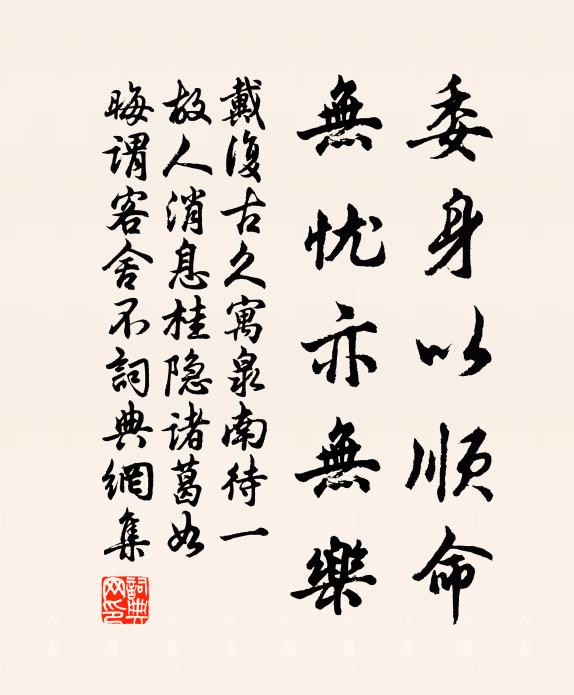 委身以顺命
無忧亦無樂
戴復古久寓泉南待一
故人消息桂隐诸葛如
晦谓客舍不詞典網集
詞典網印